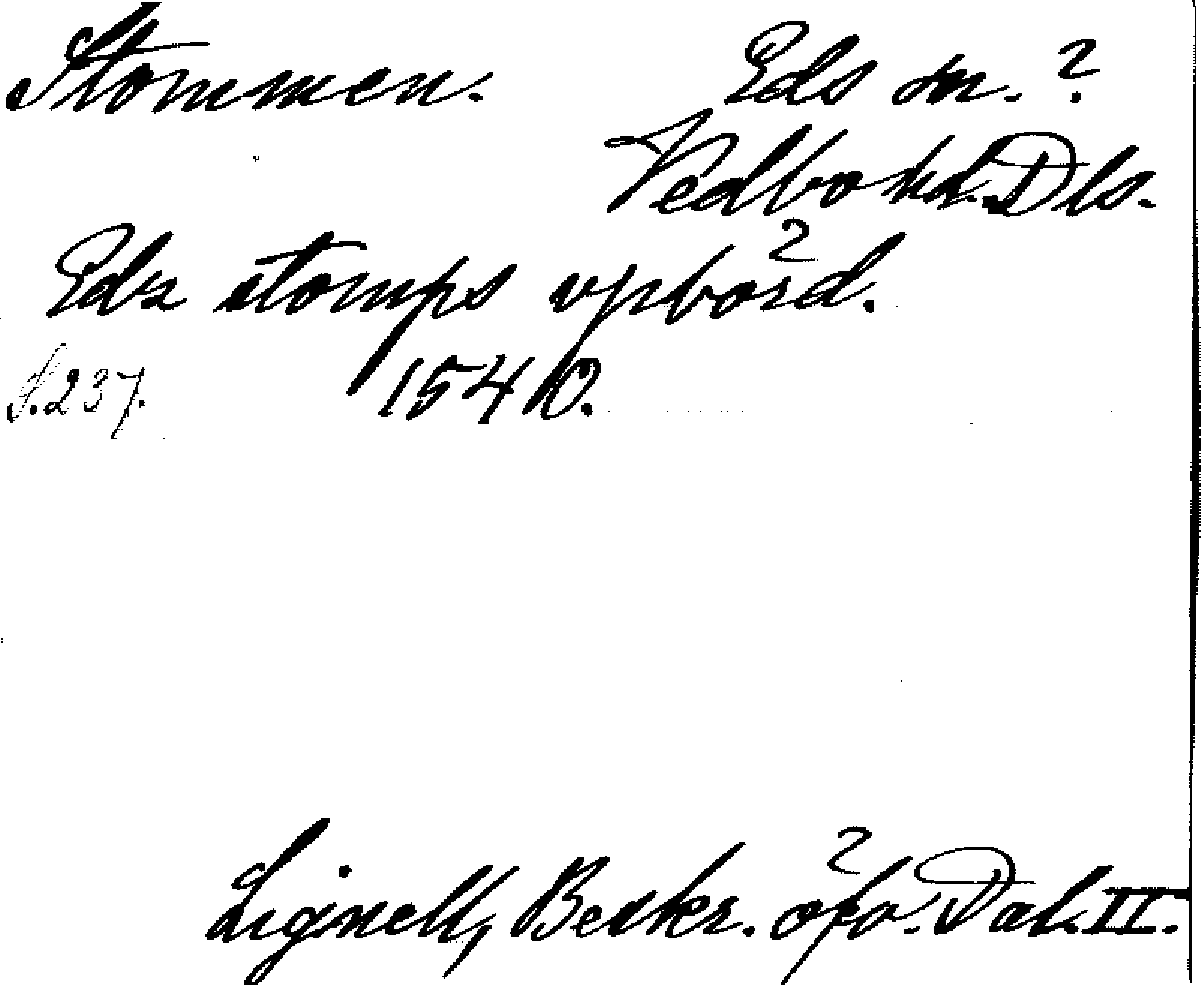 Stommen. Eds sn. ?
Vedbo hd. Dls.
Edz stomps vpbörd.
S. 237. 1540.
Lignell, Beskr. öfv. Dal. II.